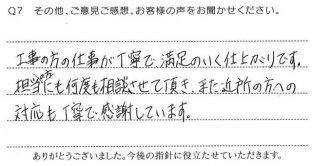 Q7 その他、ご意見ご感想、お客様の声をお聞かせください。
工事の方の仕事が丁寧で、満足のいく仕上がりです。
担当の方にも何度も相談させて頂き、また近所の方への
対応も丁寧で感謝しています。
ありがとうございました。今後の指針に役立たせていただきます。